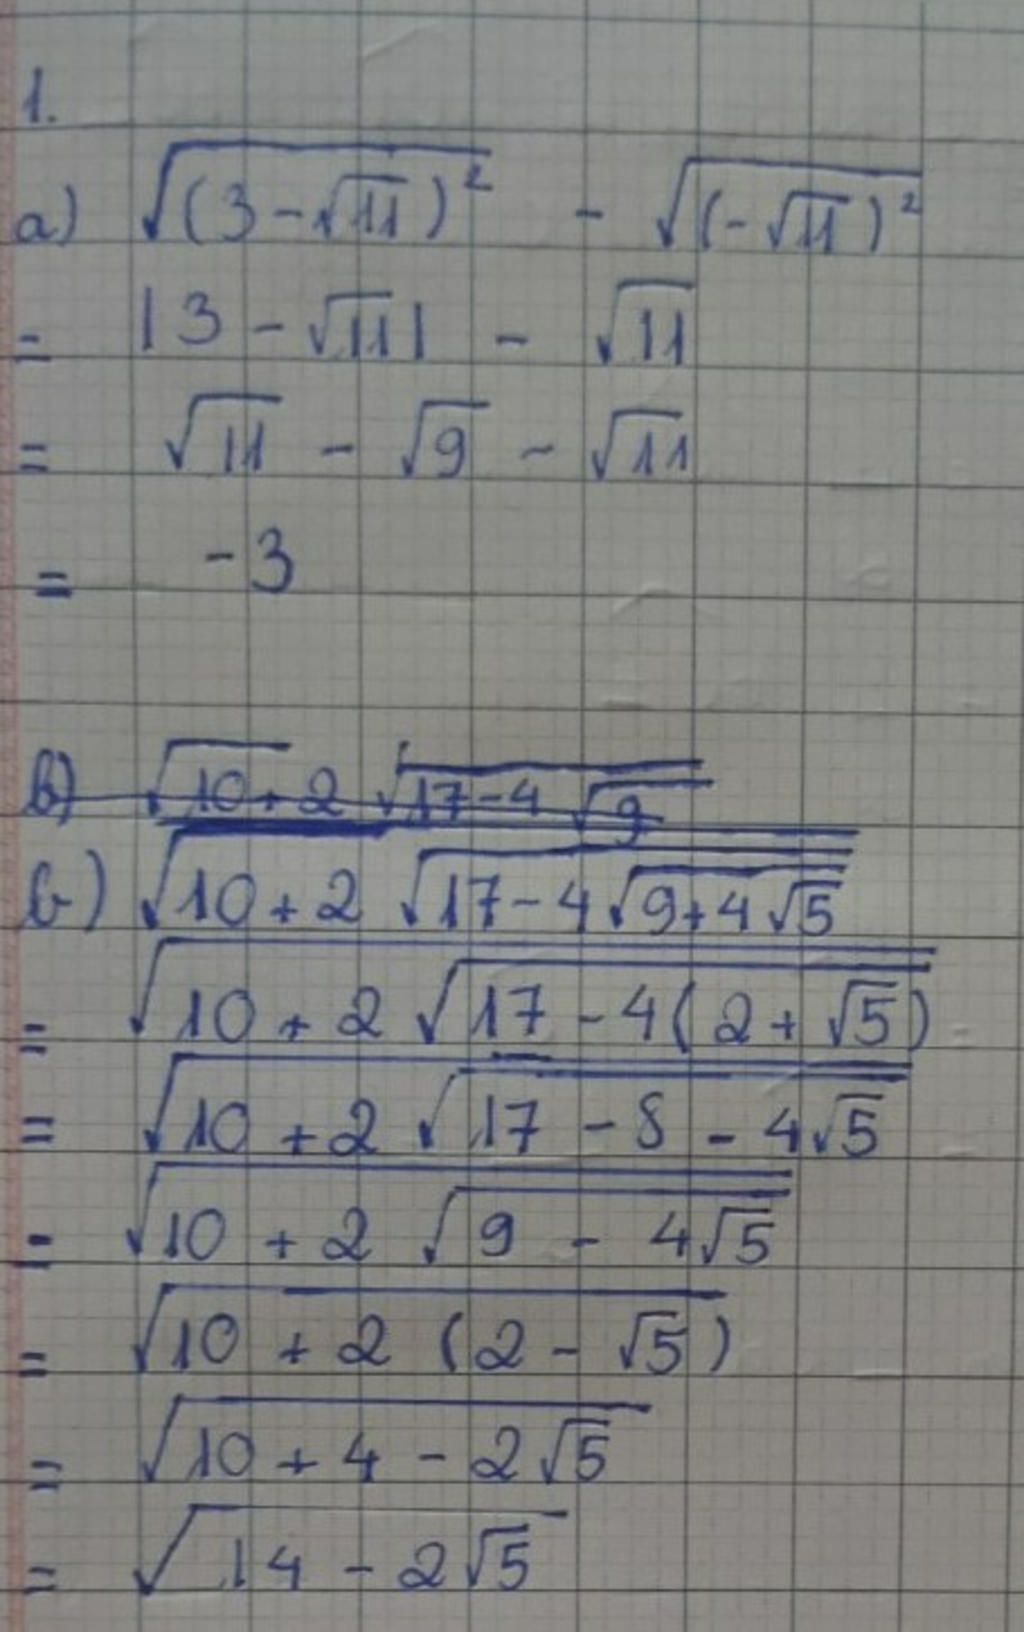 1.
a) √((3 - √11)²) - √((-√11)²)
= |3 - √11| - √11
= √11 - √9 - √11
= -3
b) √10 + 2 √(17 - 4 √9
b) √(10 + 2 √(17 - 4√(9 + 4√5)))
= √(10 + 2 √(17 - 4(2 + √5)))
= √(10 + 2 √(17 - 8 - 4√5))
= √(10 + 2 √(9 - 4√5))
= √(10 + 2 (2 - √5))
= √(10 + 4 - 2√5)
= √(14 - 2√5)